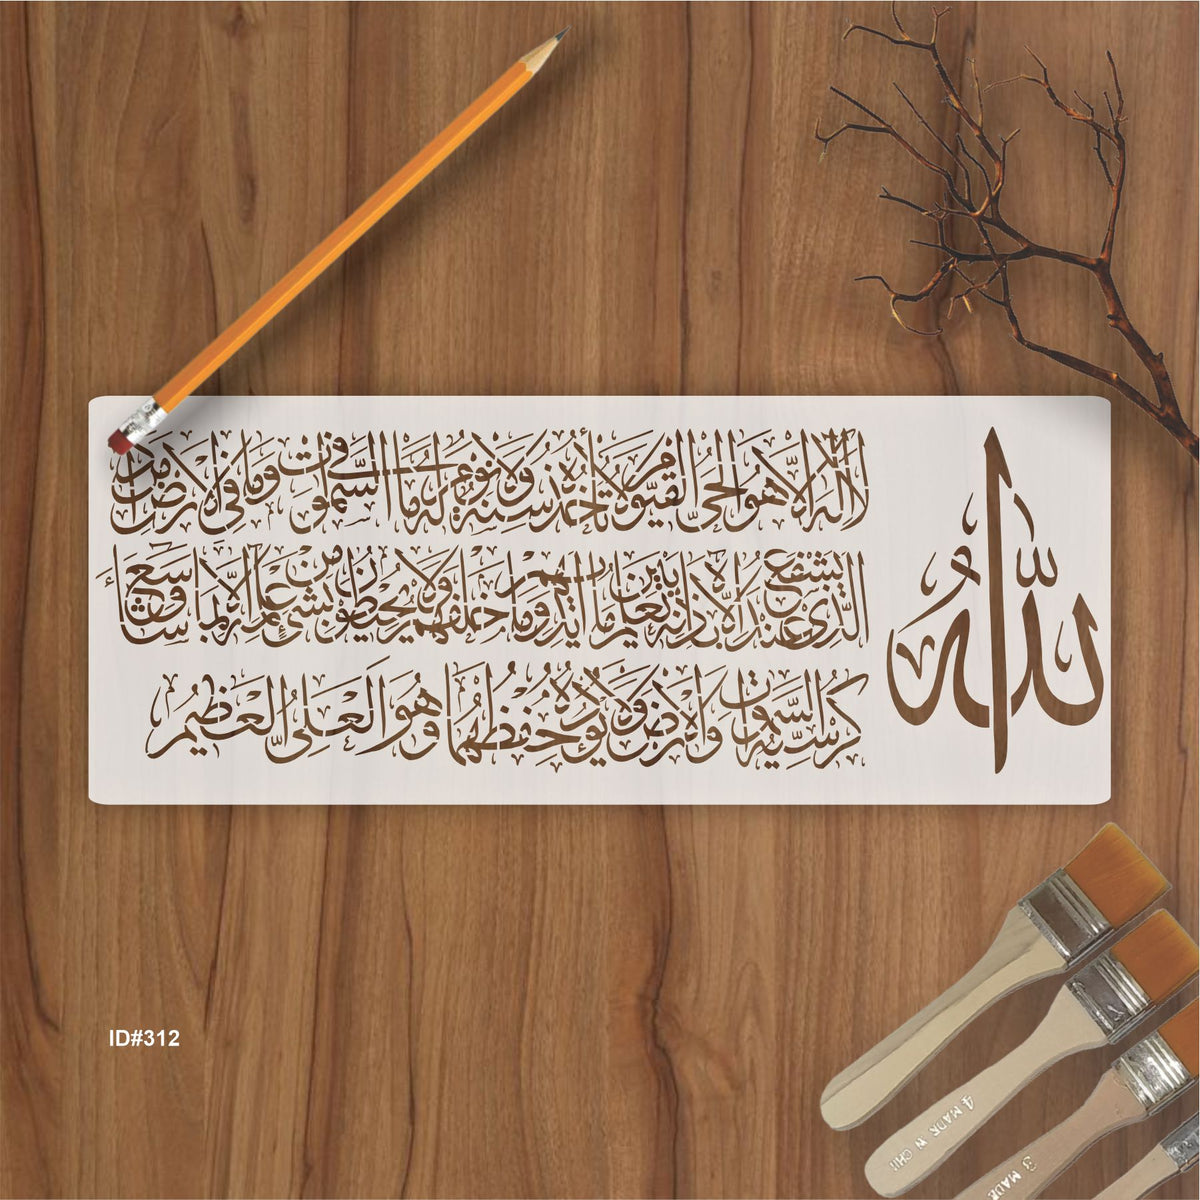 الله
لا إله إلا هو الحي القيوم لا تأخذه سنة ولا نوم له ما في السموت وما في الارض من ذا
الذي يشفع عنده الا باذنه يعلم ما بين ايديهم وما خلفهم ولا يحيطون بشيء من علمه الا بما شاء وسع
كرسيه السموت والارض ولا يؤده حفظهما وهو العلي العظيم
ID#312
4 MADE IN CHI
3 MADE